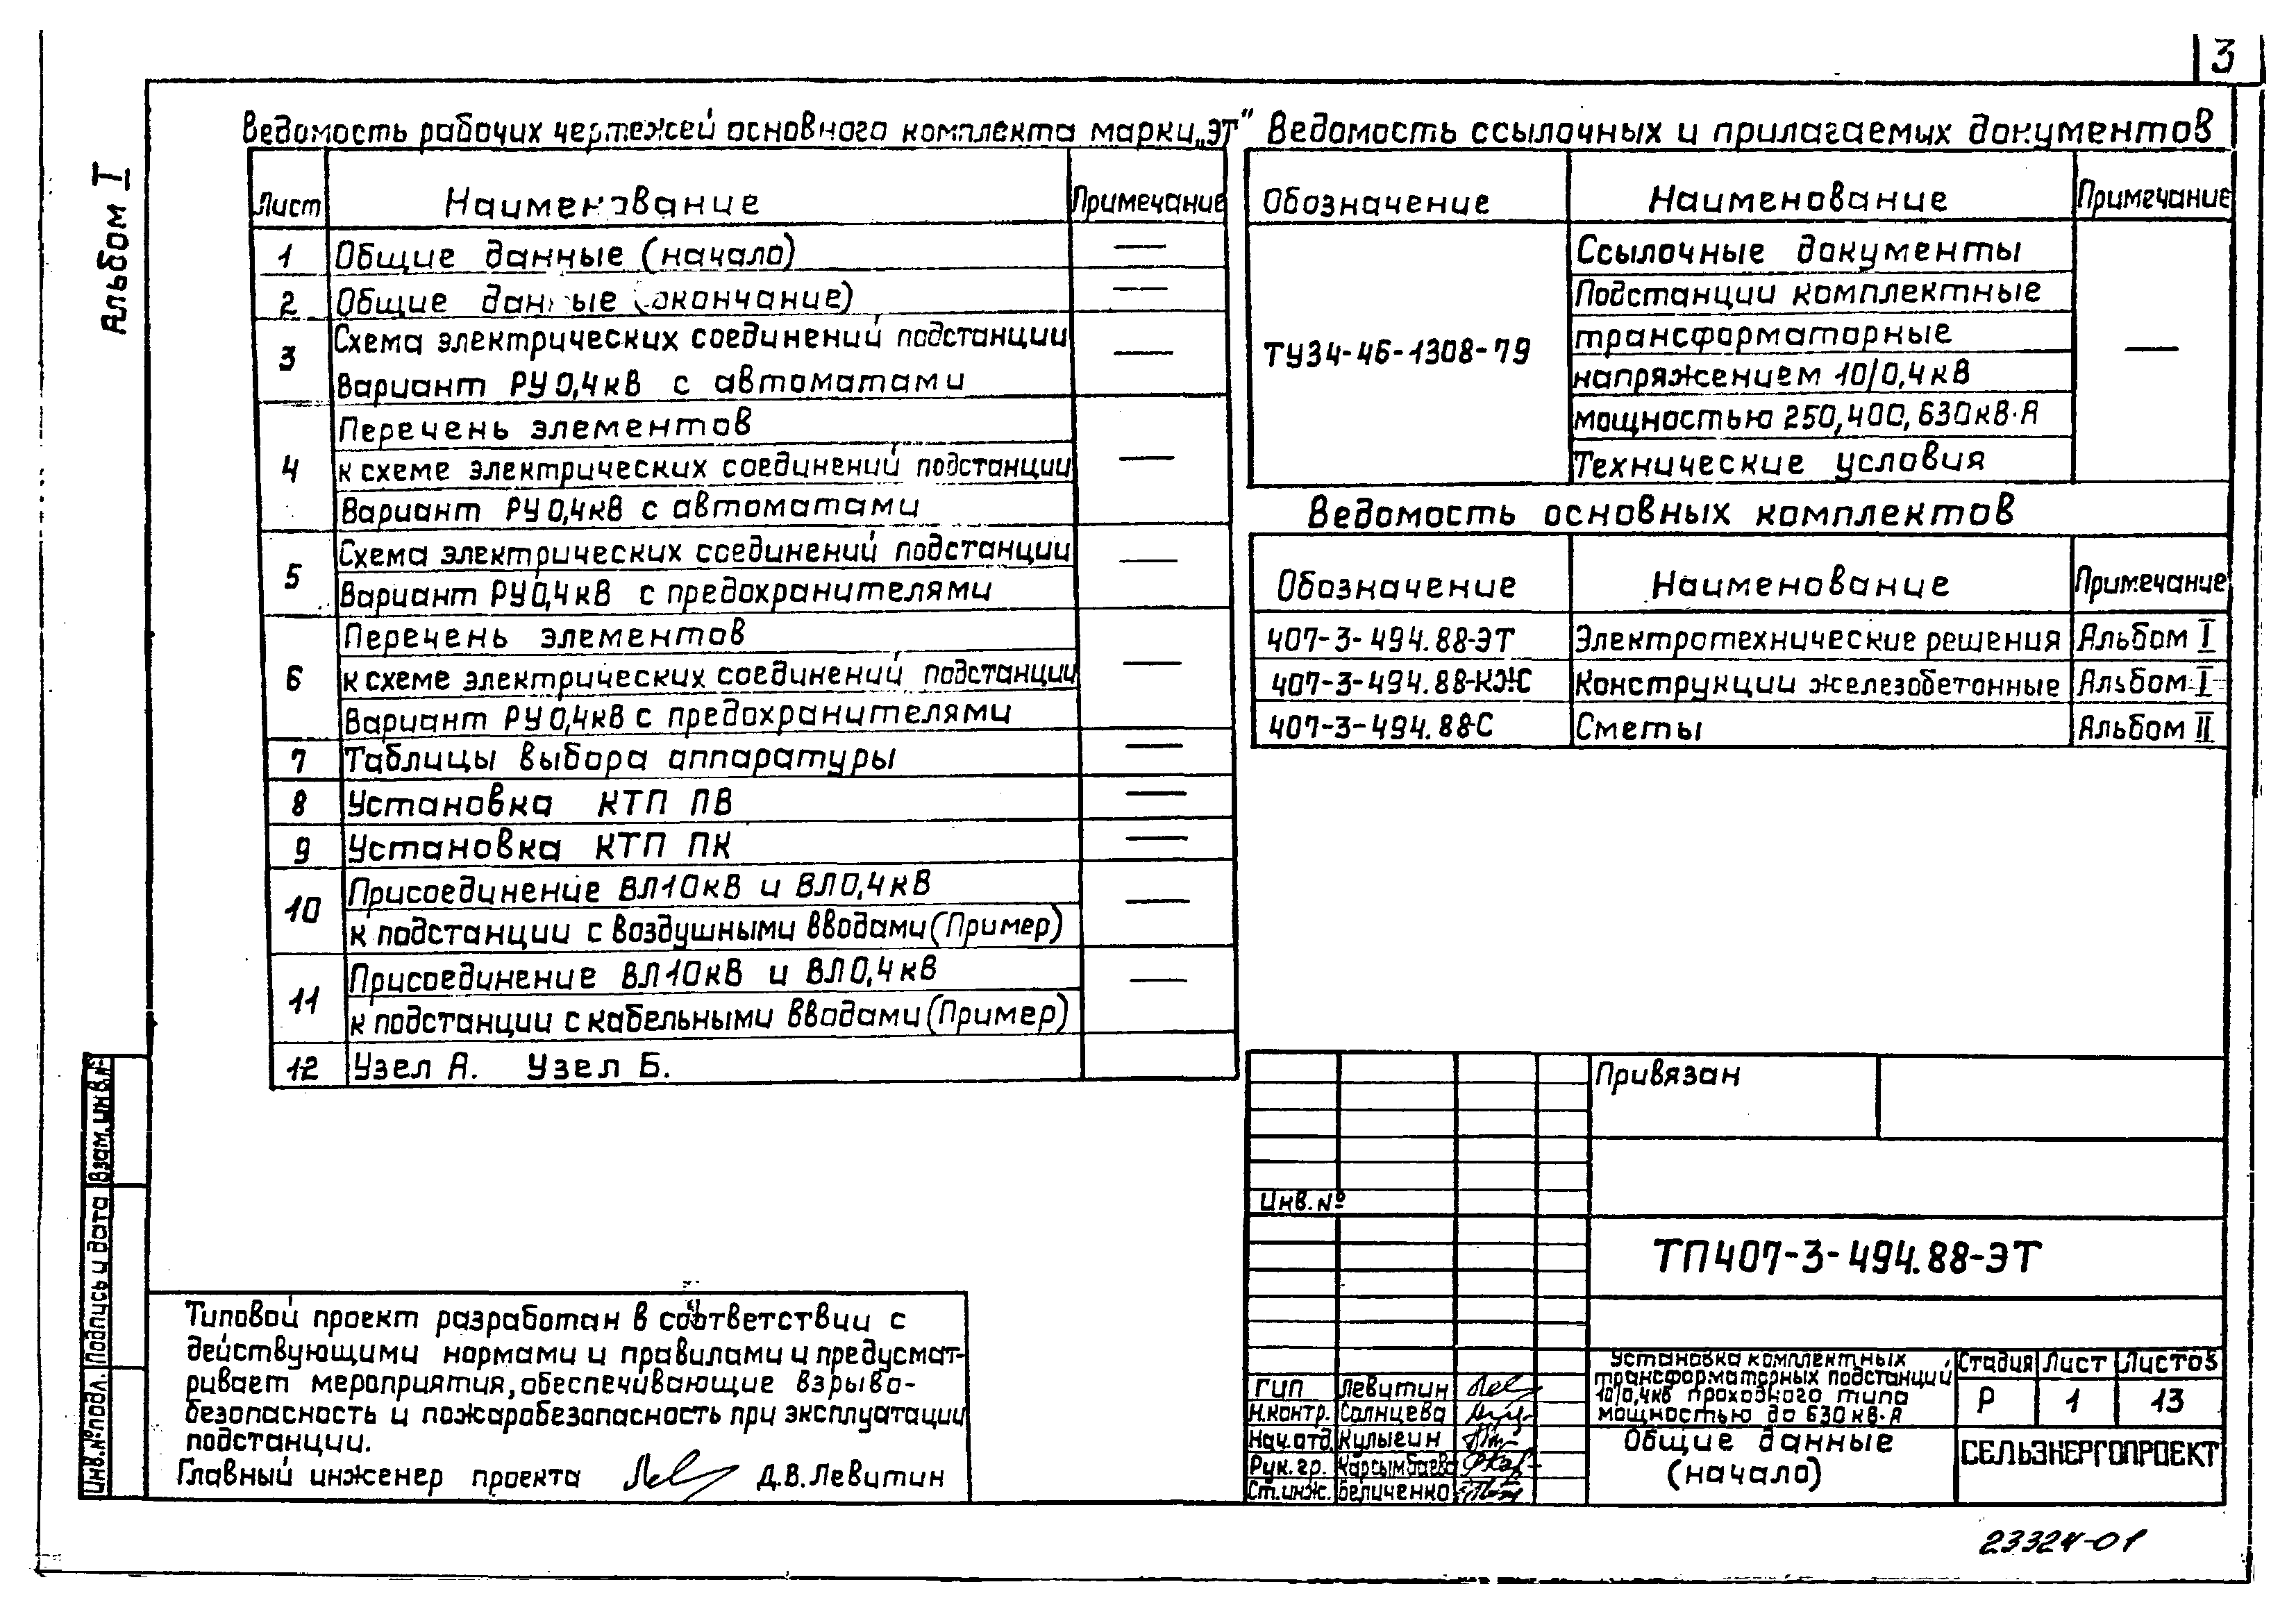 3
Альбом I
Ведомость рабочих чертежей основного комплекта марки „ЭТ"
Лист Наименование Примечание
1 Общие данные (начало) —
2 Общие данные (окончание) —
3 Схема электрических соединений подстанции —
Вариант РУ 0,4 кВ с автоматами
Перечень элементов
4 к схеме электрических соединений подстанции —
Вариант РУ 0,4 кВ с автоматами
5 Схема электрических соединений подстанции —
Вариант РУ 0,4 кВ с предохранителями
Перечень элементов
6 к схеме электрических соединений подстанции —
Вариант РУ 0,4 кВ с предохранителями
7 Таблицы выбора аппаратуры —
8 Установка КТП ПВ —
9 Установка КТП ПК —
10 Присоединение ВЛ 10 кВ и ВЛ 0,4 кВ —
к подстанции с воздушными вводами (Пример)
11 Присоединение ВЛ 10 кВ и ВЛ 0,4 кВ —
к подстанции с кабельными вводами (Пример)
12 Узел А. Узел Б.
Ведомость ссылочных и прилагаемых документов
Обозначение Наименование Примечание
Ссылочные документы
Подстанции комплектные
ТУ34-46-1308-79 трансформаторные —
напряжением 10/0,4 кВ
мощностью 250, 400, 630 кВ·А
Технические условия
Ведомость основных комплектов
Обозначение Наименование Примечание
407-3-494.88-ЭТ Электротехнические решения Альбом I
407-3-494.88-КЖ Конструкции железобетонные Альбом I
407-3-494.88-С Сметы Альбом II
Типовой проект разработан в соответствии с
действующими нормами и правилами и предусмат-
ривает мероприятия, обеспечивающие взрыво-
безопасность и пожаробезопасность при эксплуатации
подстанции.
Главный инженер проекта Д.В. Левитин
Взам. инв. №
Подпись и дата
Инв. № подл.
Привязан
Инв. №
ТП 407-3-494.88-ЭТ
Установка комплектных
трансформаторных подстанций
10/0,4 кВ проходного типа
мощностью до 630 кВ·А
Стадия Лист Листов
Р 1 13
ГИП Левитин
Н.контр. Солнцева
Нач.отд. Кулыгин
Рук. гр. Карсымбаева
Ст.инж. Беличенко
Общие данные
(начало)
СЕЛЬЭНЕРГОПРОЕКТ
23324-01